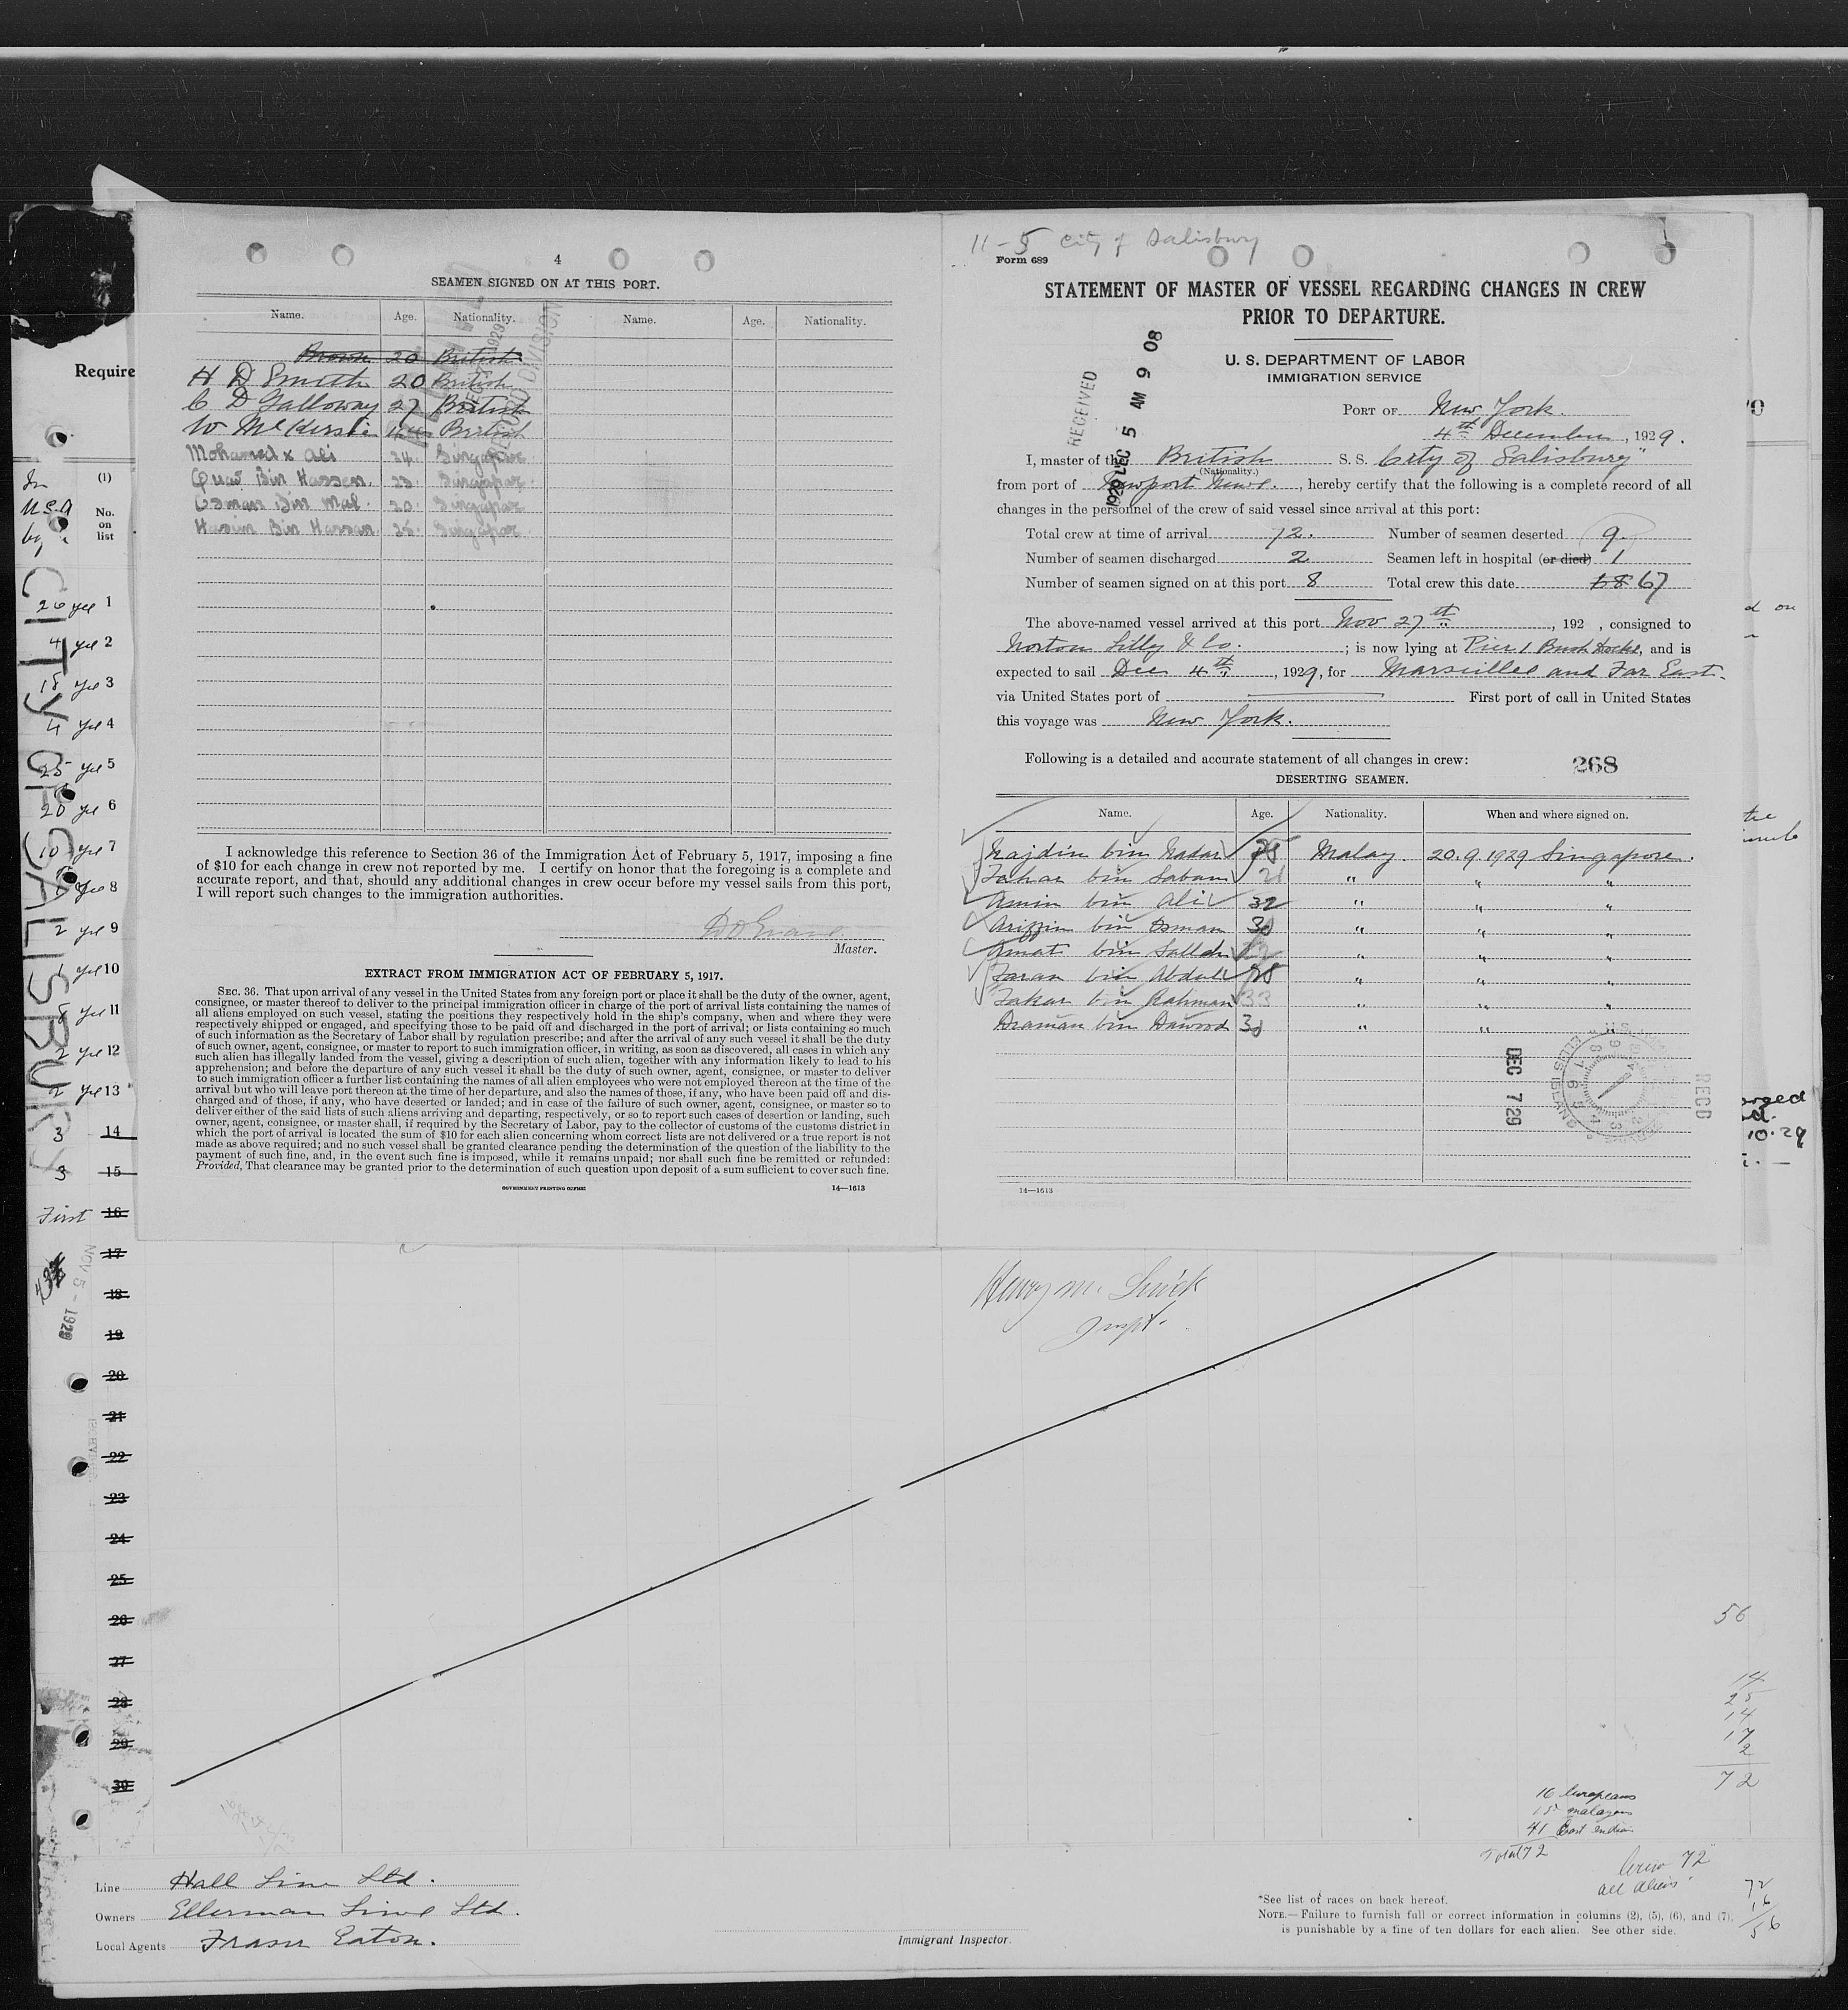 4
SEAMEN SIGNED ON AT THIS PORT.
Name. Age. Nationality. Name. Age. Nationality.
Brown 20 British
H D Smith 20 British
C D Galloway 27 British
W McKerslie British
Mohamed x Ali 24. Singapore
Bin Hassan. 23. Singapor.
Osman Bin Mat. 20. Singapor
Hasim Bin Hassan. 25. Singapor.
I acknowledge this reference to Section 36 of the Immigration Act of February 5, 1917, imposing a fine
of $10 for each change in crew not reported by me. I certify on honor that the foregoing is a complete and
accurate report, and that, should any additional changes in crew occur before my vessel sails from this port,
I will report such changes to the immigration authorities.
Master.
EXTRACT FROM IMMIGRATION ACT OF FEBRUARY 5, 1917.
SEC. 36. That upon arrival of any vessel in the United States from any foreign port or place it shall be the duty of the owner, agent,
consignee, or master thereof to deliver to the principal immigration officer in charge of the port of arrival lists containing the names of
all aliens employed on such vessel, stating the positions they respectively hold in the ship's company, when and where they were
respectively shipped or engaged, and specifying those to be paid off and discharged in the port of arrival; or lists containing so much
of such information as the Secretary of Labor shall by regulation prescribe; and after the arrival of any such vessel it shall be the duty
of such owner, agent, consignee, or master to report to such immigration officer, in writing, as soon as discovered, all cases in which any
such alien has illegally landed from the vessel, giving a description of such alien, together with any information likely to lead to his
apprehension; and before the departure of any such vessel it shall be the duty of such owner, agent, consignee, or master to deliver
to such immigration officer a further list containing the names of all alien employees who were not employed thereon at the time of the
arrival but who will leave port thereon at the time of her departure, and also the names of those, if any, who have been paid off and dis-
charged and of those, if any, who have deserted or landed; and in case of the failure of such owner, agent, consignee, or master so to
deliver either of the said lists of such aliens arriving and departing, respectively, or so to report such cases of desertion or landing, such
owner, agent, consignee, or master shall, if required by the Secretary of Labor, pay to the collector of customs of the customs district in
which the port of arrival is located the sum of $10 for each alien concerning whom correct lists are not delivered or a true report is not
made as above required; and no such vessel shall be granted clearance pending the determination of the question of the liability to the
payment of such fine, and, in the event such fine is imposed, while it remains unpaid; nor shall such fine be remitted or refunded:
Provided, That clearance may be granted prior to the determination of such question upon deposit of a sum sufficient to cover such fine.
GOVERNMENT PRINTING OFFICE 14—1613
11-5 City of Salisbury
Form 689
STATEMENT OF MASTER OF VESSEL REGARDING CHANGES IN CREW
PRIOR TO DEPARTURE.
U. S. DEPARTMENT OF LABOR
IMMIGRATION SERVICE
RECEIVED
1929 DEC 5 AM 9 08
PORT OF New York.
4th December, 1929.
I, master of the British S. S. "City of Salisbury"
(Nationality.)
from port of Newport News., hereby certify that the following is a complete record of all
changes in the personnel of the crew of said vessel since arrival at this port:
Total crew at time of arrival 72. Number of seamen deserted 9.
Number of seamen discharged 2 Seamen left in hospital (or died) 1
Number of seamen signed on at this port 8 Total crew this date 68 67
The above-named vessel arrived at this port Nov 27th, 192 , consigned to
Norton Lilly & Co. ; is now lying at Pier 1 Bush Docks, and is
expected to sail Dec 4th, 1929, for Marseilles and Far East.
via United States port of First port of call in United States
this voyage was New York.
Following is a detailed and accurate statement of all changes in crew: 268
DESERTING SEAMEN.
Name. Age. Nationality. When and where signed on.
Najdin bin Nadar 28 Malay 20.9.1929 Singapore.
Johar bin Sabani 21 " " "
Amin bin Ali 32 " " "
Ariffin bin Osman 30 " " "
Amat bin " " "
bin Abdul 28 " " "
Jakar bin Rahman 33 " " "
Draman bin Dawood 30 " "
DEC 7 29
RECD
14—1613
Require
(1)
No.
on
list
In
U.S.A
by
CITY OF SALISBURY
26 yes 1
4 yes 2
18 yes 3
4 yes 4
25 yes 5
20 yes 6
10 yes 7
yes 8
2 yes 9
1 yes 10
8 yes 11
2 yes 12
2 yes 13
3 14
3 15
First 16
17
18
19
20
21
22
23
24
25
26
27
28
29
30
NOV 5 - 1929
Insp't.
56
14
25
14
17
2
72
16 Europeans
15 malayans
41 East Indian
Total 72
Crew 72
all aliens
72
16
56
Line Hall Line Ltd.
Owners Ellerman Lines Ltd.
Local Agents Fraser Eaton.
Immigrant Inspector.
*See list of races on back hereof.
NOTE.—Failure to furnish full or correct information in columns (2), (5), (6), and (7),
is punishable by a fine of ten dollars for each alien. See other side.